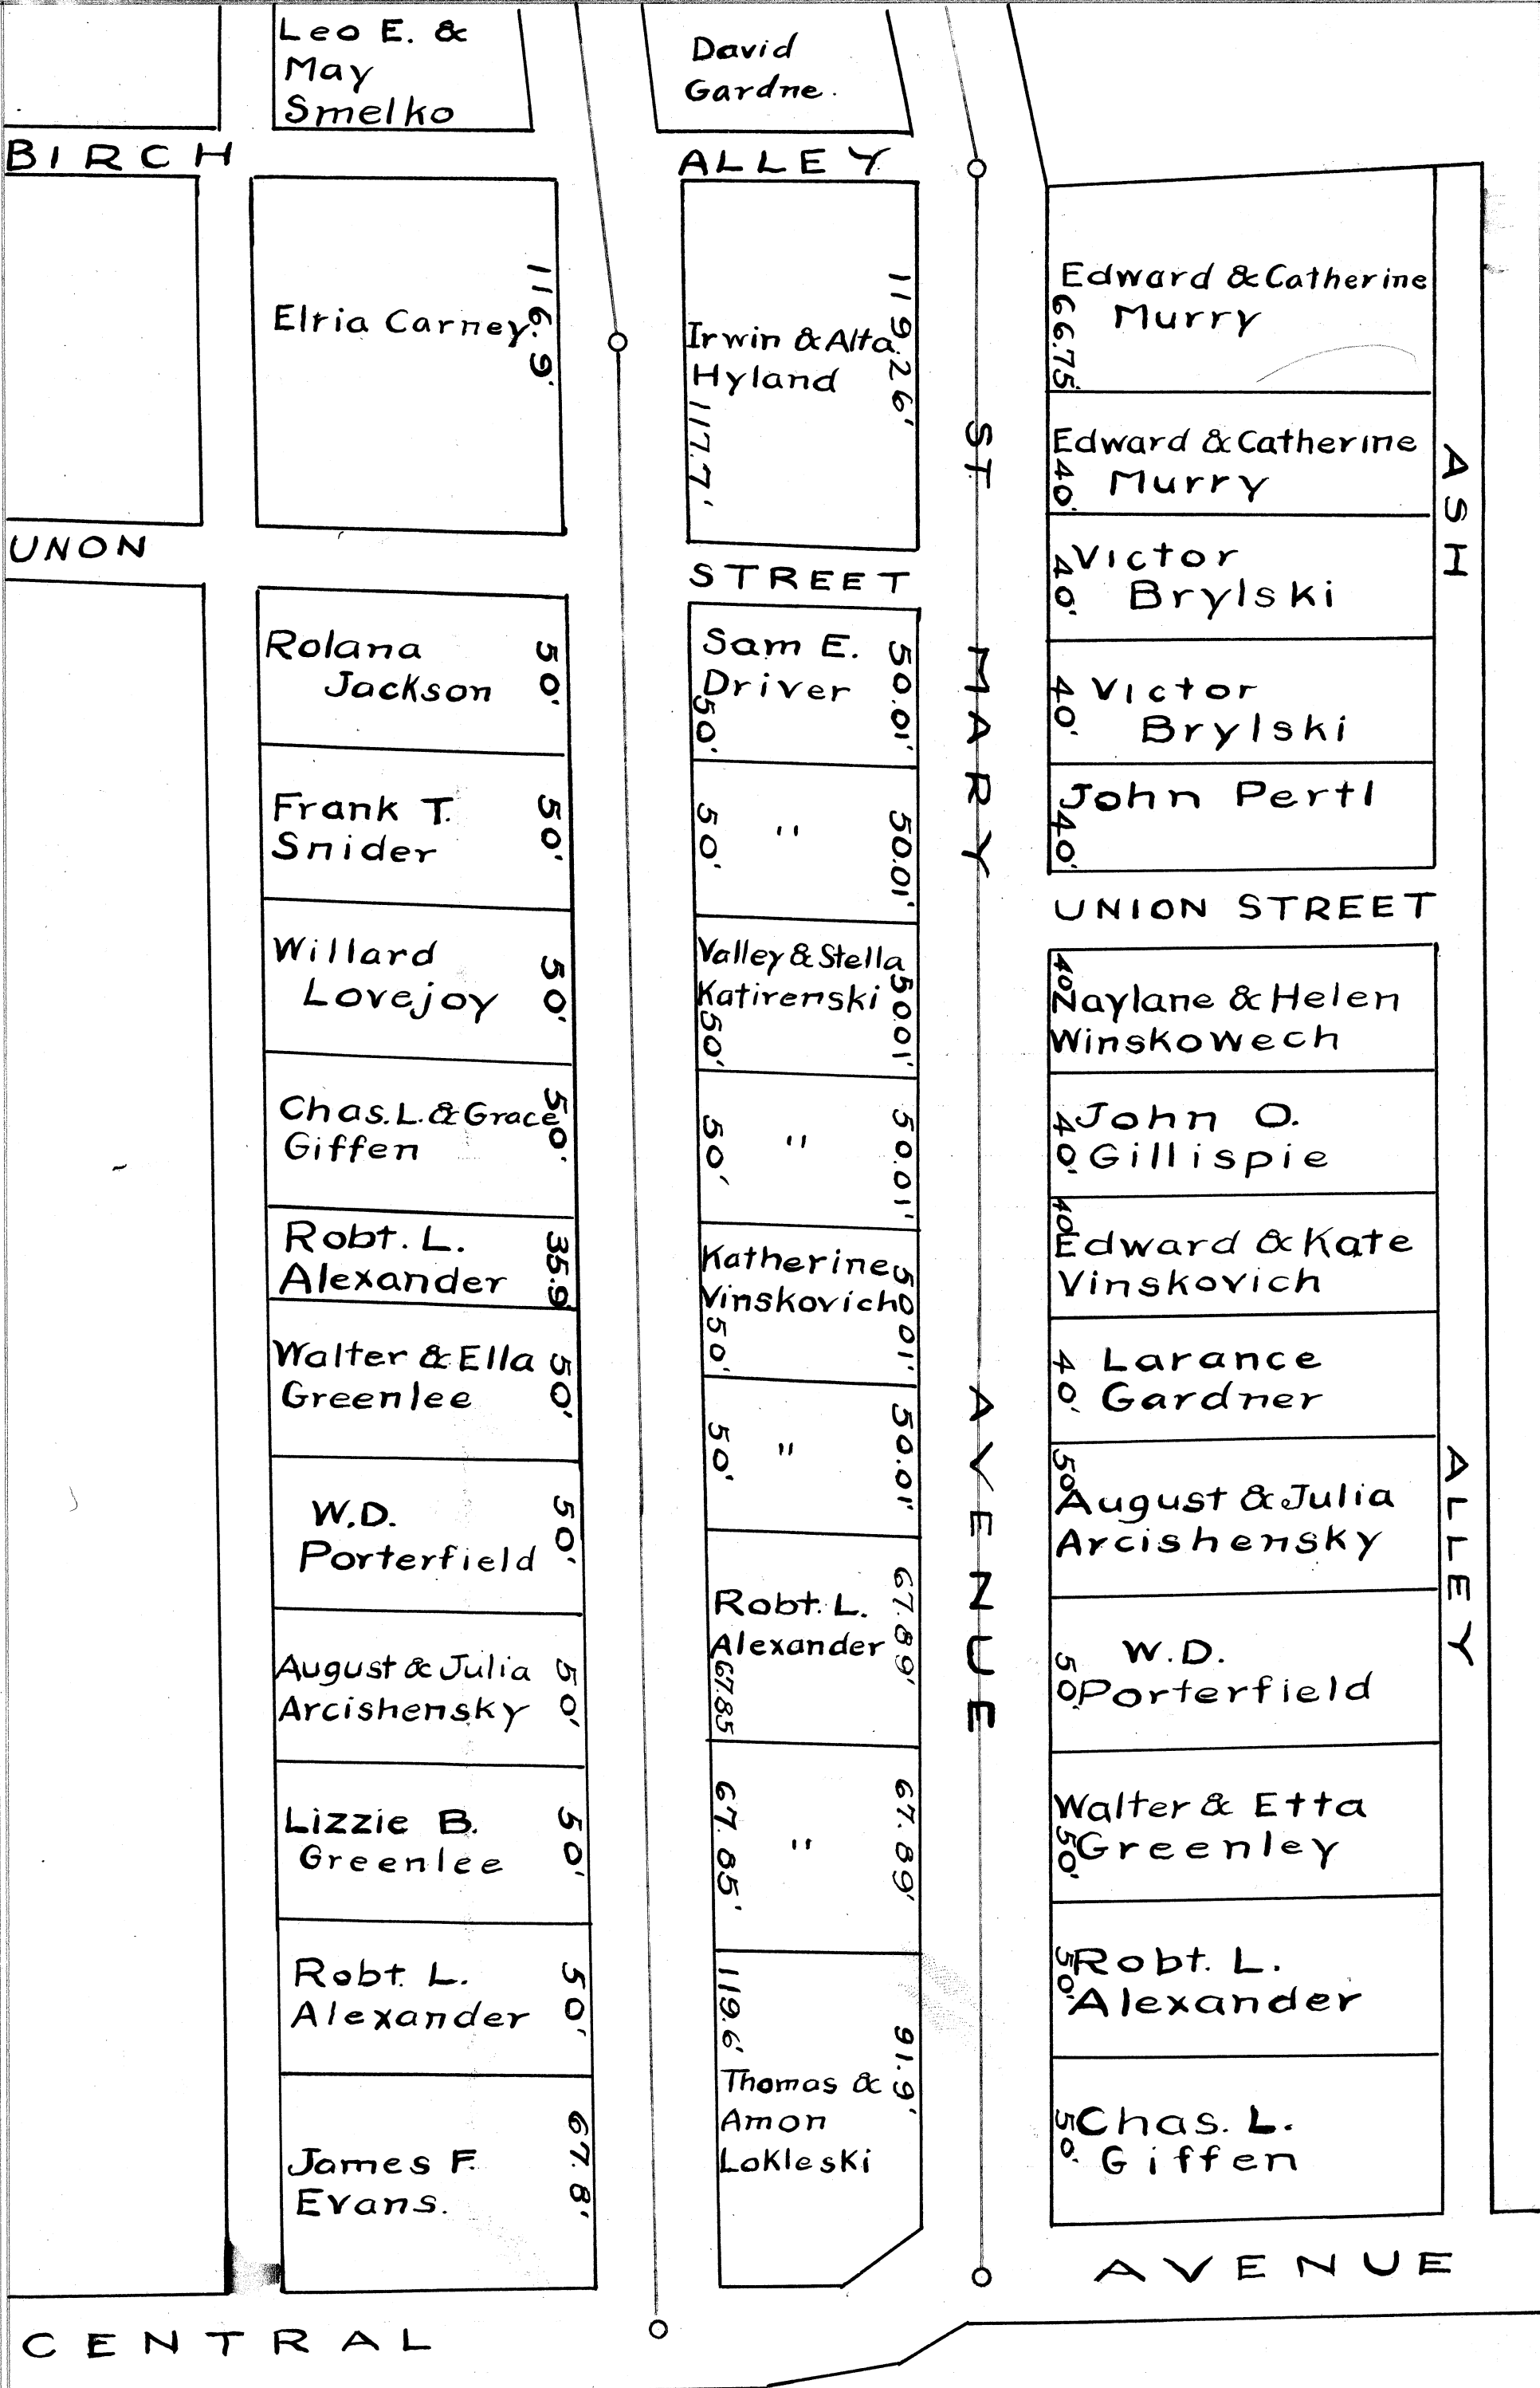 Leo E. &
May
Smelko
David
Gardne.
BIRCH ALLEY
Elria Carney
116.9'
Irwin & Alta
Hyland
119.26'
117.7'
UNON STREET
Rolana
Jackson
50'
Frank T.
Snider
50'
Willard
Lovejoy
50'
Chas. L. & Grace
Giffen
50'
Robt. L.
Alexander
35.9
Walter & Ella
Greenlee
50'
W.D.
Porterfield
50'
August & Julia
Arcishensky
50'
Lizzie B.
Greenlee
50'
Robt. L.
Alexander
50'
James F.
Evans.
67.8'
Sam E.
Driver
50'
50.01'
"
50'
50.01'
Valley & Stella
Katirenski
50'
50.01'
"
50'
50.01'
Katherine
Vinskovich
50'
50.01'
"
50'
50.01'
Robt. L.
Alexander
67.85
67.89'
"
67.85'
67.89'
119.6'
91.9'
Thomas &
Amon
Lokleski
ST. MARY AVENUE
Edward & Catherine
Murry
66.75'
Edward & Catherine
Murry
40'
Victor
Brylski
40'
Victor
Brylski
40'
John Pertl
40'
UNION STREET
Naylane & Helen
Winskowech
40'
John O.
Gillispie
40'
Edward & Kate
Vinskovich
40'
Larance
Gardner
40'
August & Julia
Arcishensky
50'
W.D.
Porterfield
50'
Walter & Etta
Greenley
50'
Robt. L.
Alexander
50'
Chas. L.
Giffen
50'
ASH ALLEY
CENTRAL AVENUE